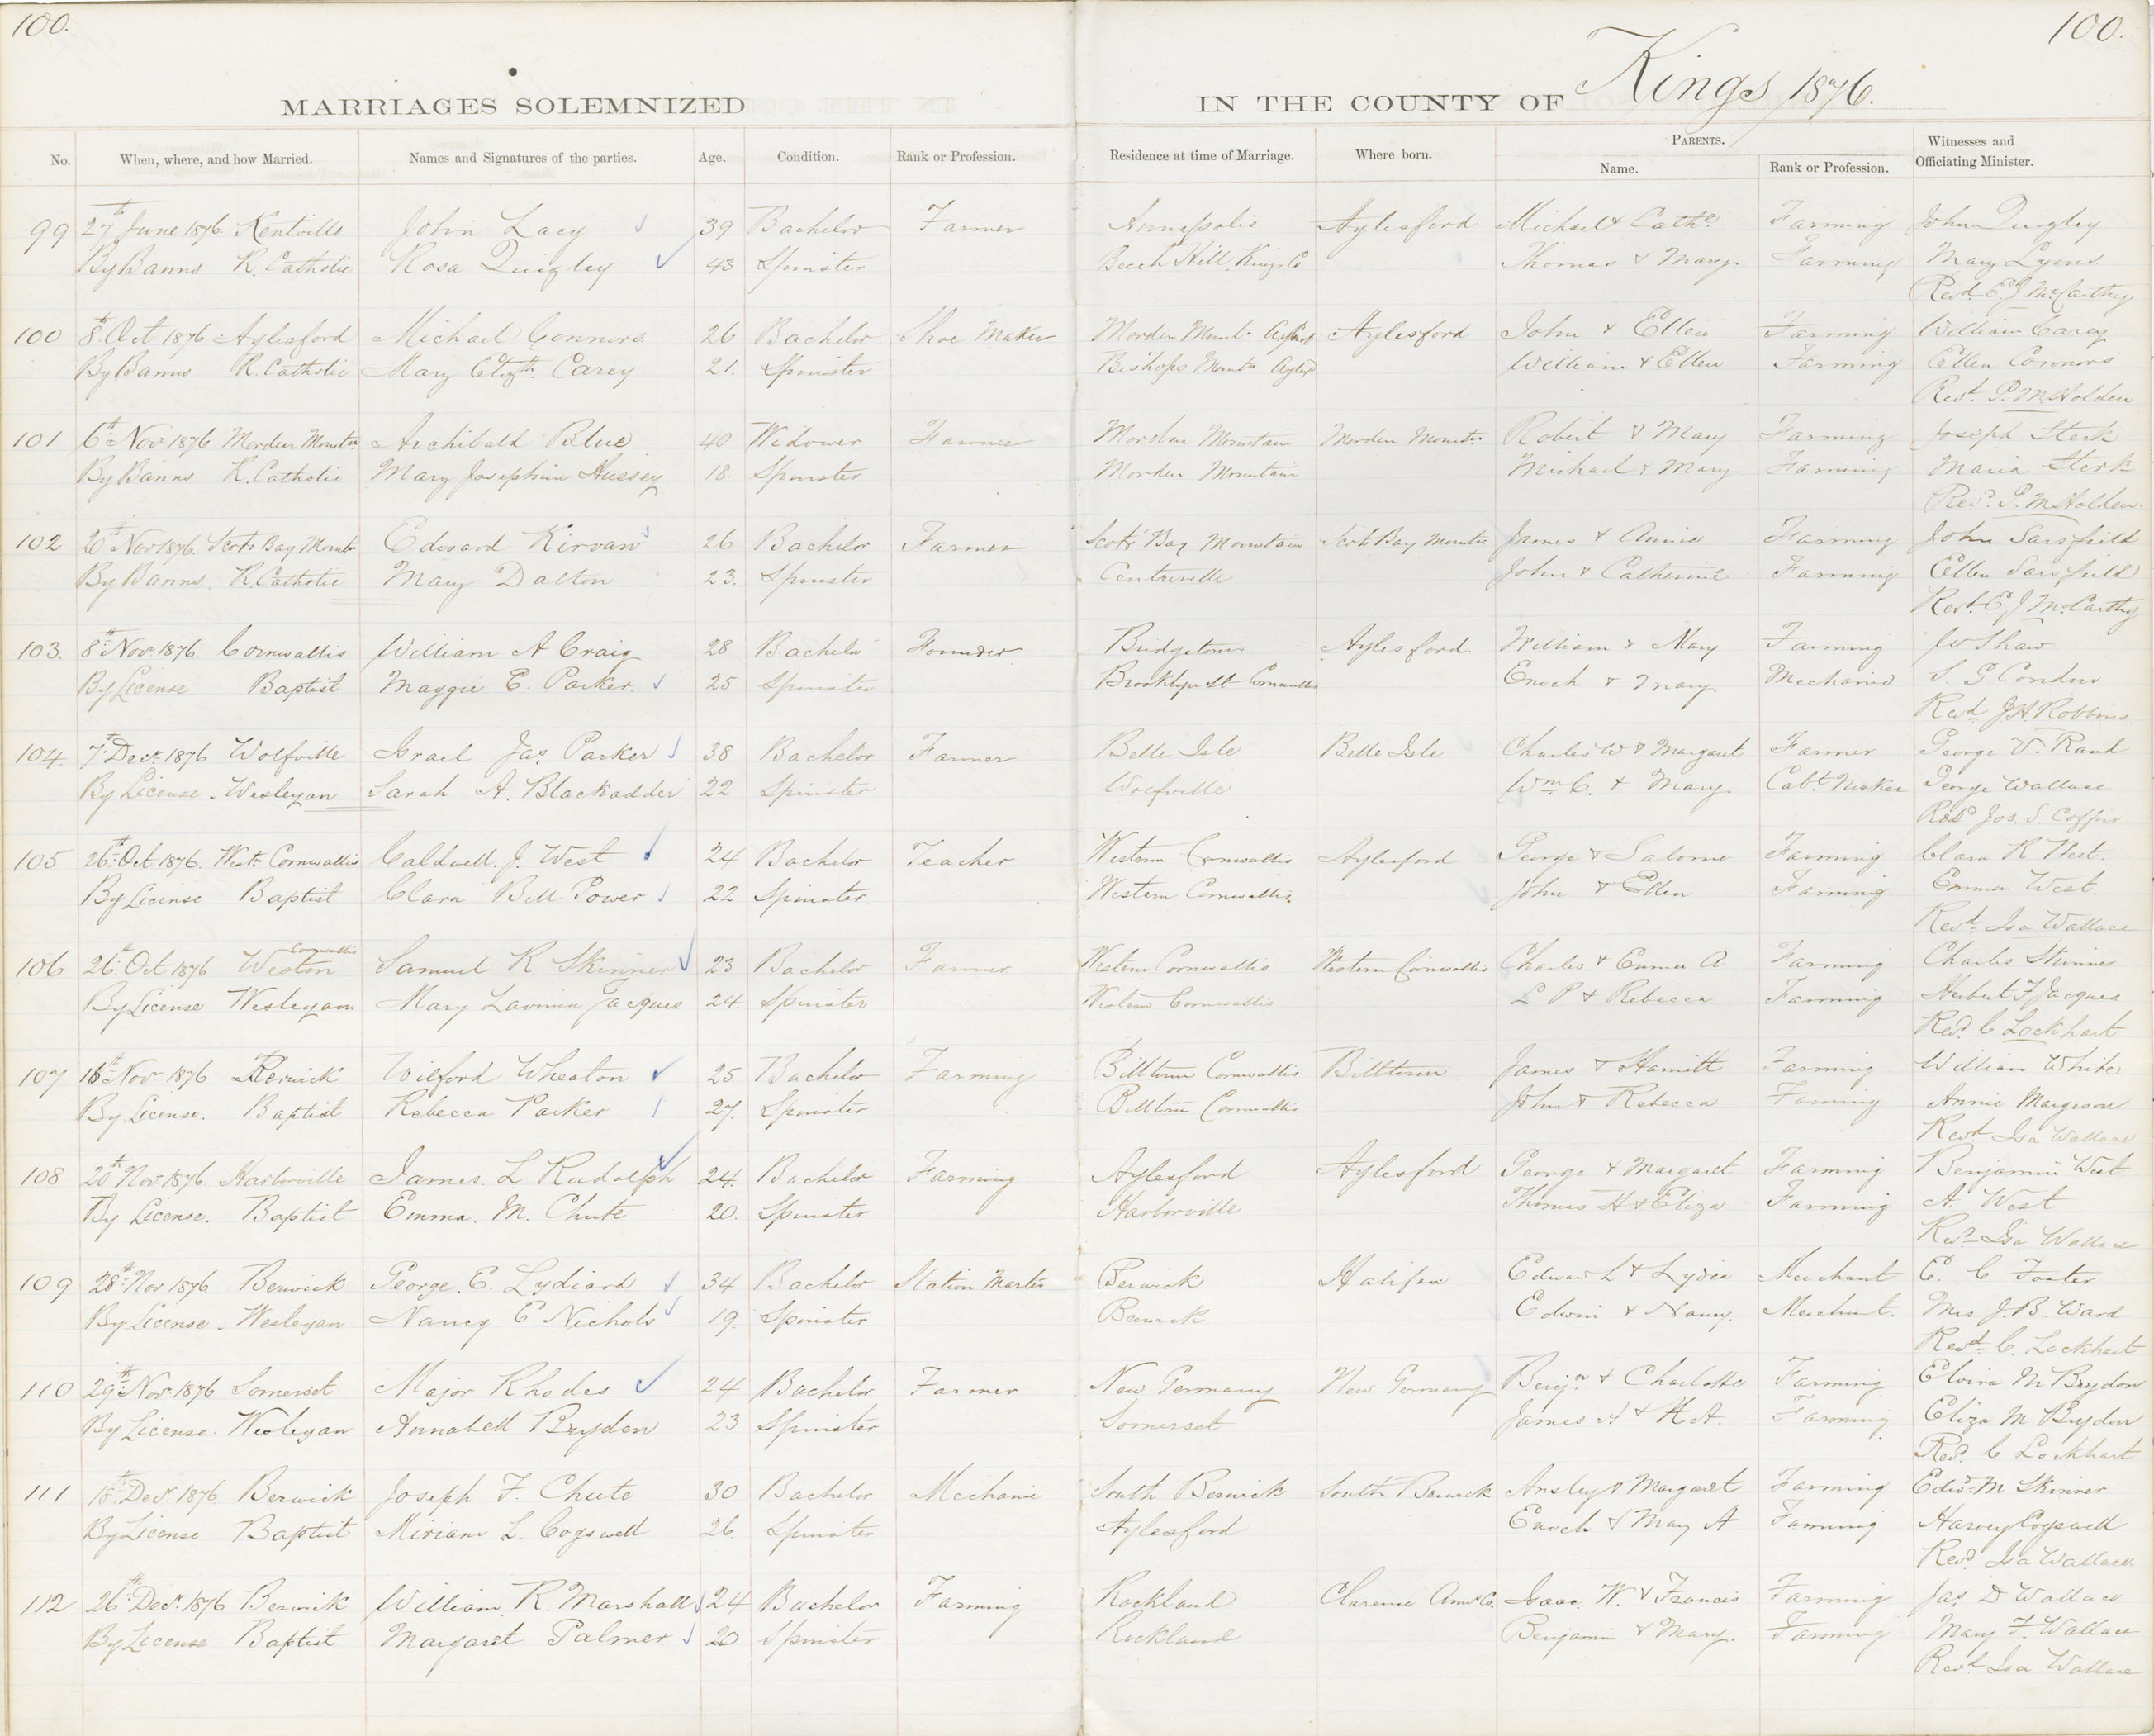 100. 100.
MARRIAGES SOLEMNIZED IN THE COUNTY OF Kings 1876.
No. When, where, and how Married. Names and Signatures of the parties. Age. Condition. Rank or Profession. Residence at time of Marriage. Where born. PARENTS. Name. Rank or Profession. Witnesses and Officiating Minister.
99 27th June 1876 Kentville John Lacy 39 Bachelor Farmer Annapolis Aylesford Michael & Cathe Farming John Quigley
By Banns R. Catholic Rosa Quigley 43 Spinster Beech Hill Kings Co Thomas & Mary. Farming Mary Lyons
Revd. E. J. McCarthy
100 8th Oct 1876 Aylesford Michael Connors 26 Bachelor Shoe Maker Morden Mount Aylesford John & Ellen Farming William Carey
By Banns R. Catholic Mary Elizth. Carey 21. Spinster Bishops Mountn William & Ellen Farming Ellen Connors
Revd. P. M. Holden
101 6th Nov 1876 Morden Mountn Archibald Blue 40 Widower Farmer Morden Mountain Morden Mountn Robert & Mary Farming Joseph Sterk
By Banns R. Catholic Mary Josephine Hussey 18. Spinster Morden Mountain Michael & Mary Farming Maria Sterk
Revd. P. M. Holden.
102 20th Nov 1876. Scots Bay Mountn Edward Kirvan 26 Bachelor Farmer Scots Bay Mountain Scots Bay Mountn James & Annie Farming John Sarsfield
By Banns. R. Catholic Mary Dalton 23. Spinster Centreville John & Catherine Farming Ellen Sarsfield
Revd. E J McCarthy
103. 8th Nov 1876 Cornwallis William A Craig 28 Bachelor Founder Bridgetown Aylesford. William & Mary Farming W Shaw
By License Baptist Maggie E. Parker. 25 Spinster Brooklyn St Cornwallis Enoch & Mary. Mechanic S. G Condon
Revd J. H. Robbins.
104. 7th Decr 1876 Wolfville Israel Jas. Parker 38 Bachelor Farmer Belle Isle Belle Isle Charles W & Margaret Farmer George V. Rand
By License. Wesleyan Sarah A. Blackadder 22 Spinster Wolfville Wm C. & Mary. Cabt. Maker George Wallace
Revd Jos. S. Coffin
105 26th Oct 1876. Westn Cornwallis Caldwell. J. West 24 Bachelor Teacher Western Cornwallis Aylesford George & Salome Farming Clara R West.
By License Baptist Clara Bell Power 22 Spinster. Western Cornwallis. John & Ellen Farming Emma West.
Revd. Isa Wallace
106 26th Oct 1876 Weston Cornwallis Samuel R Skinner 23 Bachelor Farmer Western Cornwallis Western Cornwallis Charles & Emma A Farming Charles Skinner
By License Wesleyan Mary Lavinia Jacques 24. Spinster Western Cornwallis L P & Rebecca Farming Herbert F Jacques
Revd. C Lockhart
107 16th Nov 1876 Berwick Wilford Wheaton 25 Bachelor Farming Billtown Cornwallis Billtown James & Hamitt Farming William White
By License. Baptist Rebecca Parker 27. Spinster Billtown Cornwallis John & Rebecca Farming Annie Margeson
Revd Isa Wallace
108 20th Nov 1876. Harborville James. L Rudolph 24. Bachelor Farming Aylesford Aylesford George & Margaret Farming Benjamin West
By License. Baptist Emma. M. Chute 20. Spinster Harborville Thomas H & Eliza Farming A. West
Revd. Isa Wallace
109 28th Nov 1876 Berwick George. E. Lydiard 34 Bachelor Station Master Berwick Halifax Edwar L & Lydia Merchant E. C Foster
By License. Wesleyan Nancy E Nichols 19. Spinster Berwick Edwin & Nancy. Merchant. Mrs J. B. Ward
Revd. C. Lockhart
110 29th Nov 1876 Somerset Major Rhodes 24 Bachelor Farmer New Germany New Germany Benjn & Charlotte Farming Elvira M Brydon
By License. Wesleyan Annabell Bryden 23 Spinster Somerset James A & H. A. Farming Eliza M Brydon
Revd. C Lockhart
111 18th Decr. 1876 Berwick Joseph F. Chute 30 Bachelor Mechanic South Berwick South Berwick Ansley & Margaret Farming Edwd M Skinner
By License Baptist Miriam L. Cogswell 26. Spinster Aylesford Enoch & Mary A Farming Harvey Cogswell
Revd Isa Wallace.
112 26th Decr. 1876 Berwick William. R. Marshall 24 Bachelor Farming Rockland Clarence Anns Co. Isaac. W. & Francis Farming Jas D Wallace
By License Baptist Margaret Palmer 20 Spinster Rockland Benjamin & Mary. Farming Mary F. Wallace
Revd. Isa Wallace